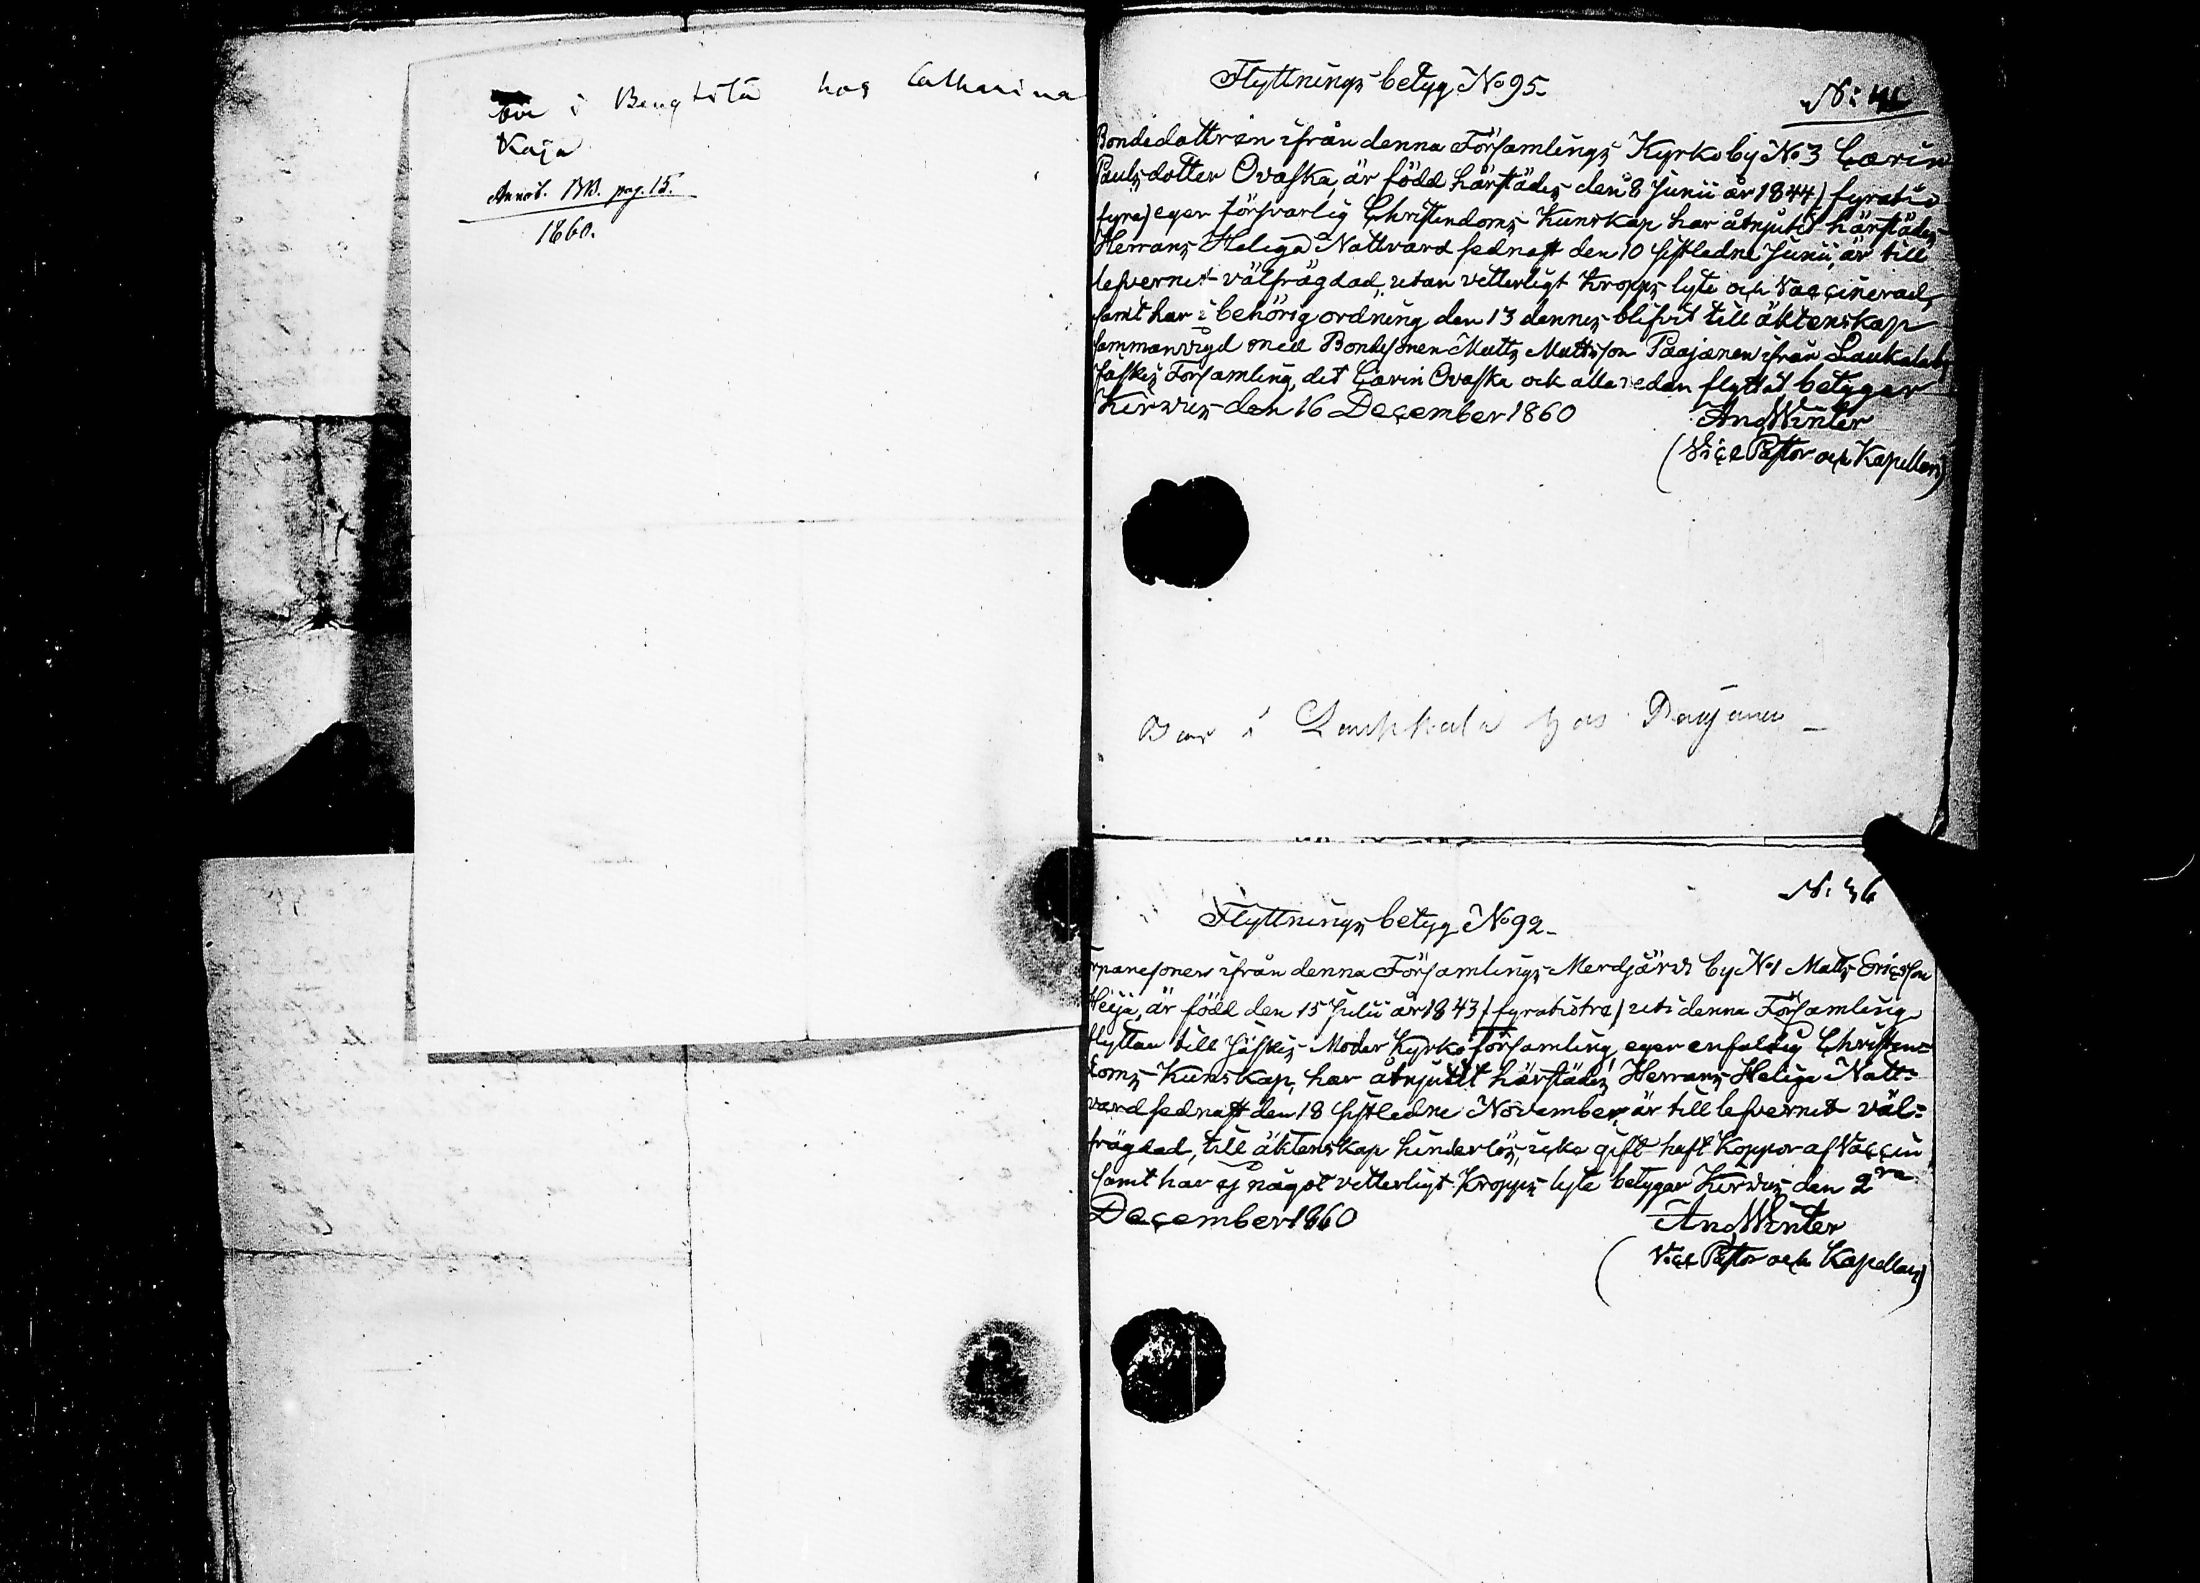 i Bengtilä hos Catharina
Kaja
Annot. BB. pag. 15.
1860.
Flyttnings betyg No 95.
N: 41
Bondedottren ifrån denna Församlings Kyrkoby No 3 Carin
Paulsdotter Ovaska, är född härstädes den 8 Junii år 1844 / fyratio
fyra / eger försvarlig Christendoms Kunskap har åtnjutit härstädes
Herrans Heliga Nattvard sednast den 10 sistledne Junii, är till
lefvernet välfrägdad, utan vetterligt Kropps lyte och Vaccinerad,
samt har i behörig ordning den 13 dennes blifvit till äktenskap
sammanvigd med Bondesonen Matts Mattsson Paajanen ifrån Laukala by
Jäskis Församling, dit Carin Ovaska ock allaredan flyttat betygar
Kirvus den 16 December 1860
And Winter
(Vice Pastor och Kapellan)
Bor i Laukkala hos Paajanen
N: 36
Flyttnings betyg No 92.
ifrån denna Församlings Merdjärvi by No 1 Matts Ericsson
Heija, är född den 15 Julii år 1843 / fyratiotre / uti denna Församling
flyttar till Jäskis Moder Kyrko församling, eger enfaldig Christen=
doms Kunskap, har åtnjutit härstädes Herrans Heliga Natt=
vard sednast den 18 sistledne November, är till lefvernet väl=
frägdad, till äktenskap hinderlös, icke gift haft Koppor af Vaccin
samt har ej något vetterligt Kropps lyte betygar Kirvus den 2ra
December 1860
And Winter
(Vice Pastor och Kapellan)